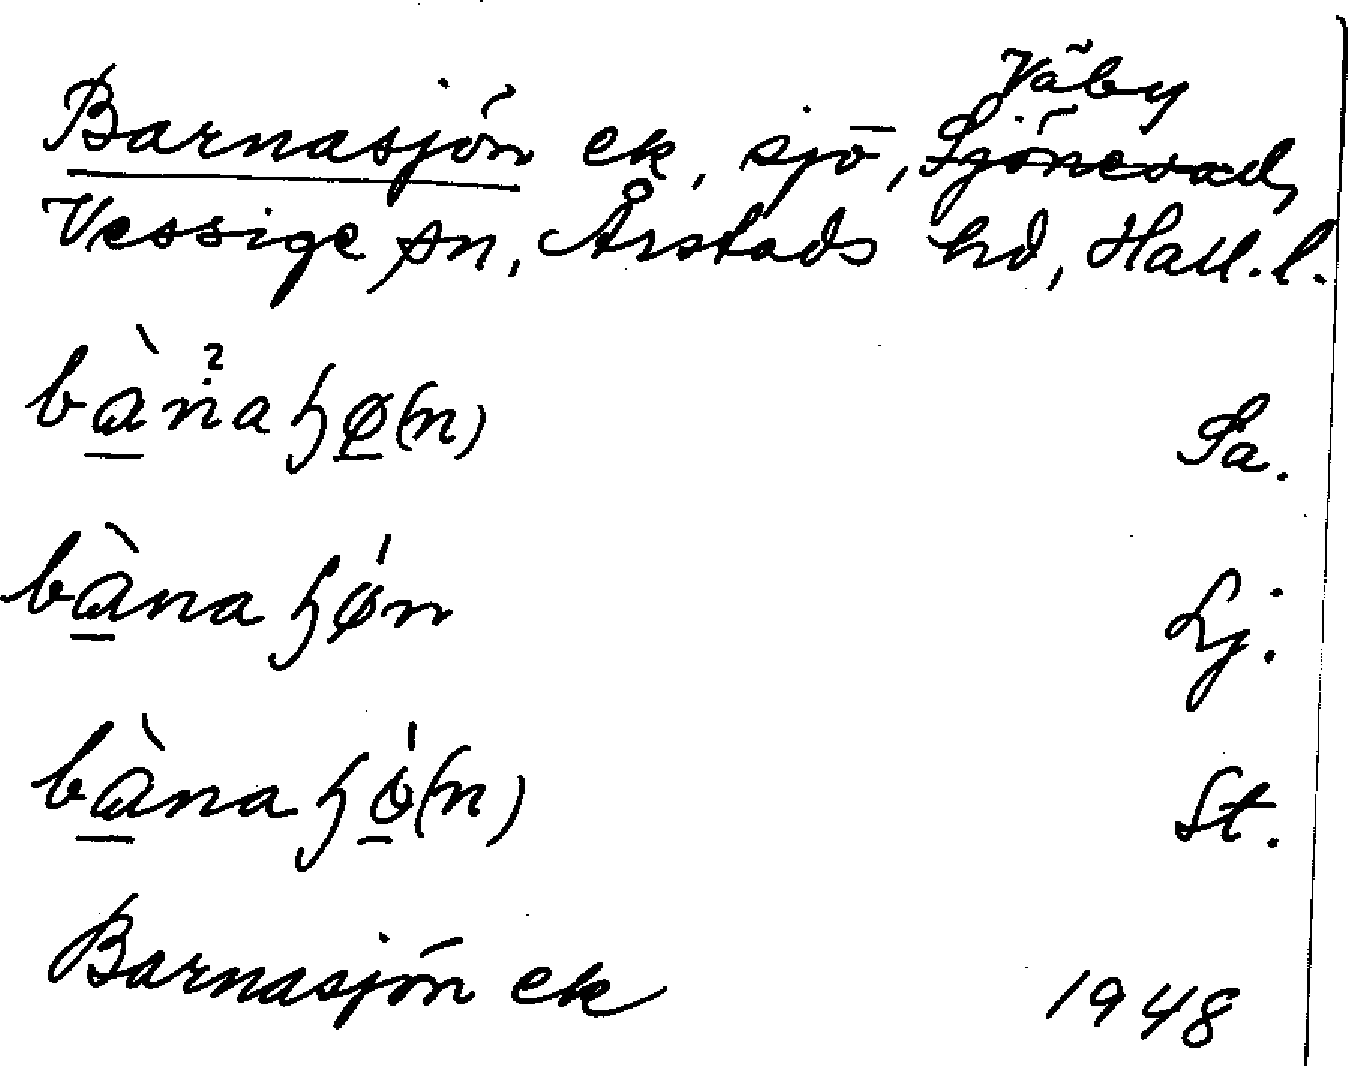 Väby
Barnasjön ek, sjö, Sjönevad,
Vessige sn, Årstads hd, Hall.l.
bàṇ̀aɧø(n) Sa.
bànaɧǿn Lj.
bànaɧó(n) St.
Barnasjön ek 1948